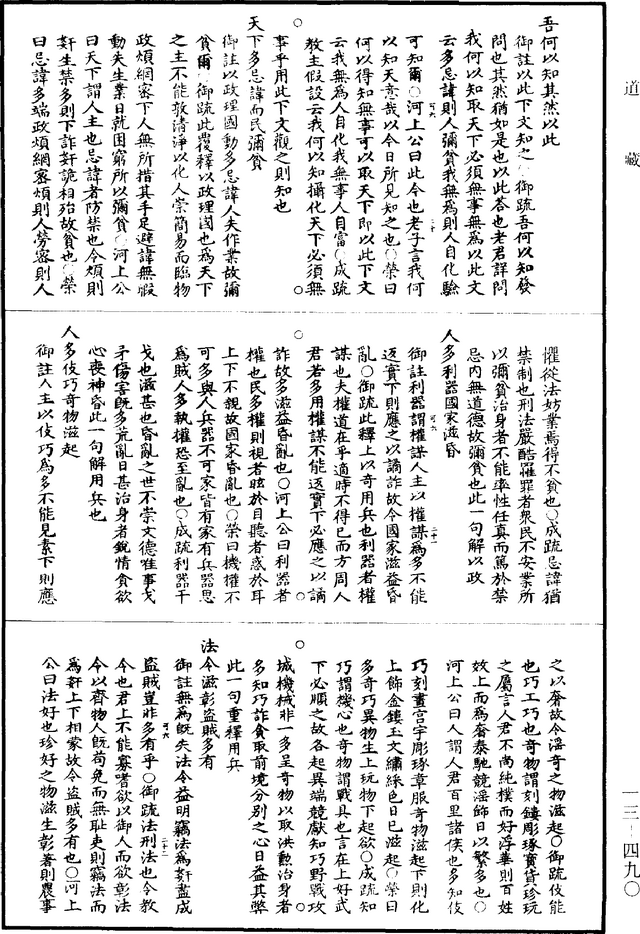 道藏
吾何以知其然以此
御註以此下文知之○御疏吾何以知發
問也其然猶如是也以此荅也老君詳問
我何以知取天下必須無事無為以此文
云多忌諱則人彌貧我無為則人自化驗
可知爾○河上公曰此今也老子言我何
以知天意哉以今日所見知之也○榮曰
何以得知無事可以取天下即以此下文
云我無為人自化我無事人自富○成疏
教主假設云我何以知攝化天下必須無
事乎用此下文觀之則知也
天下多忌諱而民彌貧
御註以政理國動多忌諱人失作業故彌
貧爾○御疏此覆釋以政理國也為天下
之主不能敦清淨以化人崇簡易而臨物
政煩網密下人無所措其手足避諱無暇
動失生業日就困窮所以彌貧○河上公
曰天下謂人主也忌諱者防禁也令煩則
奸生禁多則下詐奸詭相殆故貧也○榮
曰忌諱多端政煩網密煩則人勞密則人
懼從法妨業焉得不貧也○成疏忌諱猶
禁制也刑法嚴酷羅罪者衆民不安業所
以彌貧治身者不能率性任真而篤於禁
忌內無道德故彌貧也此一句解以政
人多利器國家滋昏
御註利器謂權謀人主以權謀為多不能
返實下則應之以譎詐故令國家滋益昏
亂○御疏此釋上以奇用兵也利器者權
謀也夫權道在乎適時不得已而方用人
君若多用權謀不能返實下必應之以譎
詐故多滋益昏亂也○河上公曰利器者
權也民多權則視者眩於目聽者惑於耳
上下不親故國家昏亂也○榮曰機權不
可多與人兵器不可家皆有家有兵器思
為賊人多執權恐至亂也○成疏利器干
戈也滋甚也昏亂之世不崇文德唯事戈
矛傷害既多荒亂日甚治身者銳情食欲
心喪神昏此一句解用兵也
人多伎巧奇物滋起
御註人主以伎巧為多不能見素下則應
之以奢故令滛奇之物滋起○御疏伎能
也巧工巧也奇物謂刻鏤彫琢寶貨珍玩
之屬言人君不尚純樸而好浮華則百姓
效上而為奢泰馳競滛飾日以繁多也○
河上公曰人謂人君百里諸侯也多知伎
巧刻畫宮宇彫琢章服奇物滋起下則化
上飾金鏤玉文繡綵色日已滋起○榮曰
多奇巧異物生上玩物下起欲○成疏知
巧謂機心也奇物謂戰具也言在上好武
下必順之故各起異端競獻知巧野戰攻
城機械非一多呈奇物以取洪勳治身者
多知巧詐貪取前境分別之心日益其弊
此一句重釋用兵
法令滋彰盜賊多有
御註無為既失法令益明竊法為奸盡成
盜賊豈非多有乎○御疏法刑法也令教
令也君上不能寡嗜欲以御人而欲彰法
令以齊物人既苟免而無恥吏則竊法而
為奸上下相蒙故令盜賊多有也○河上
公曰法好也珍好之物滋生彰著則農事
一三—四九○